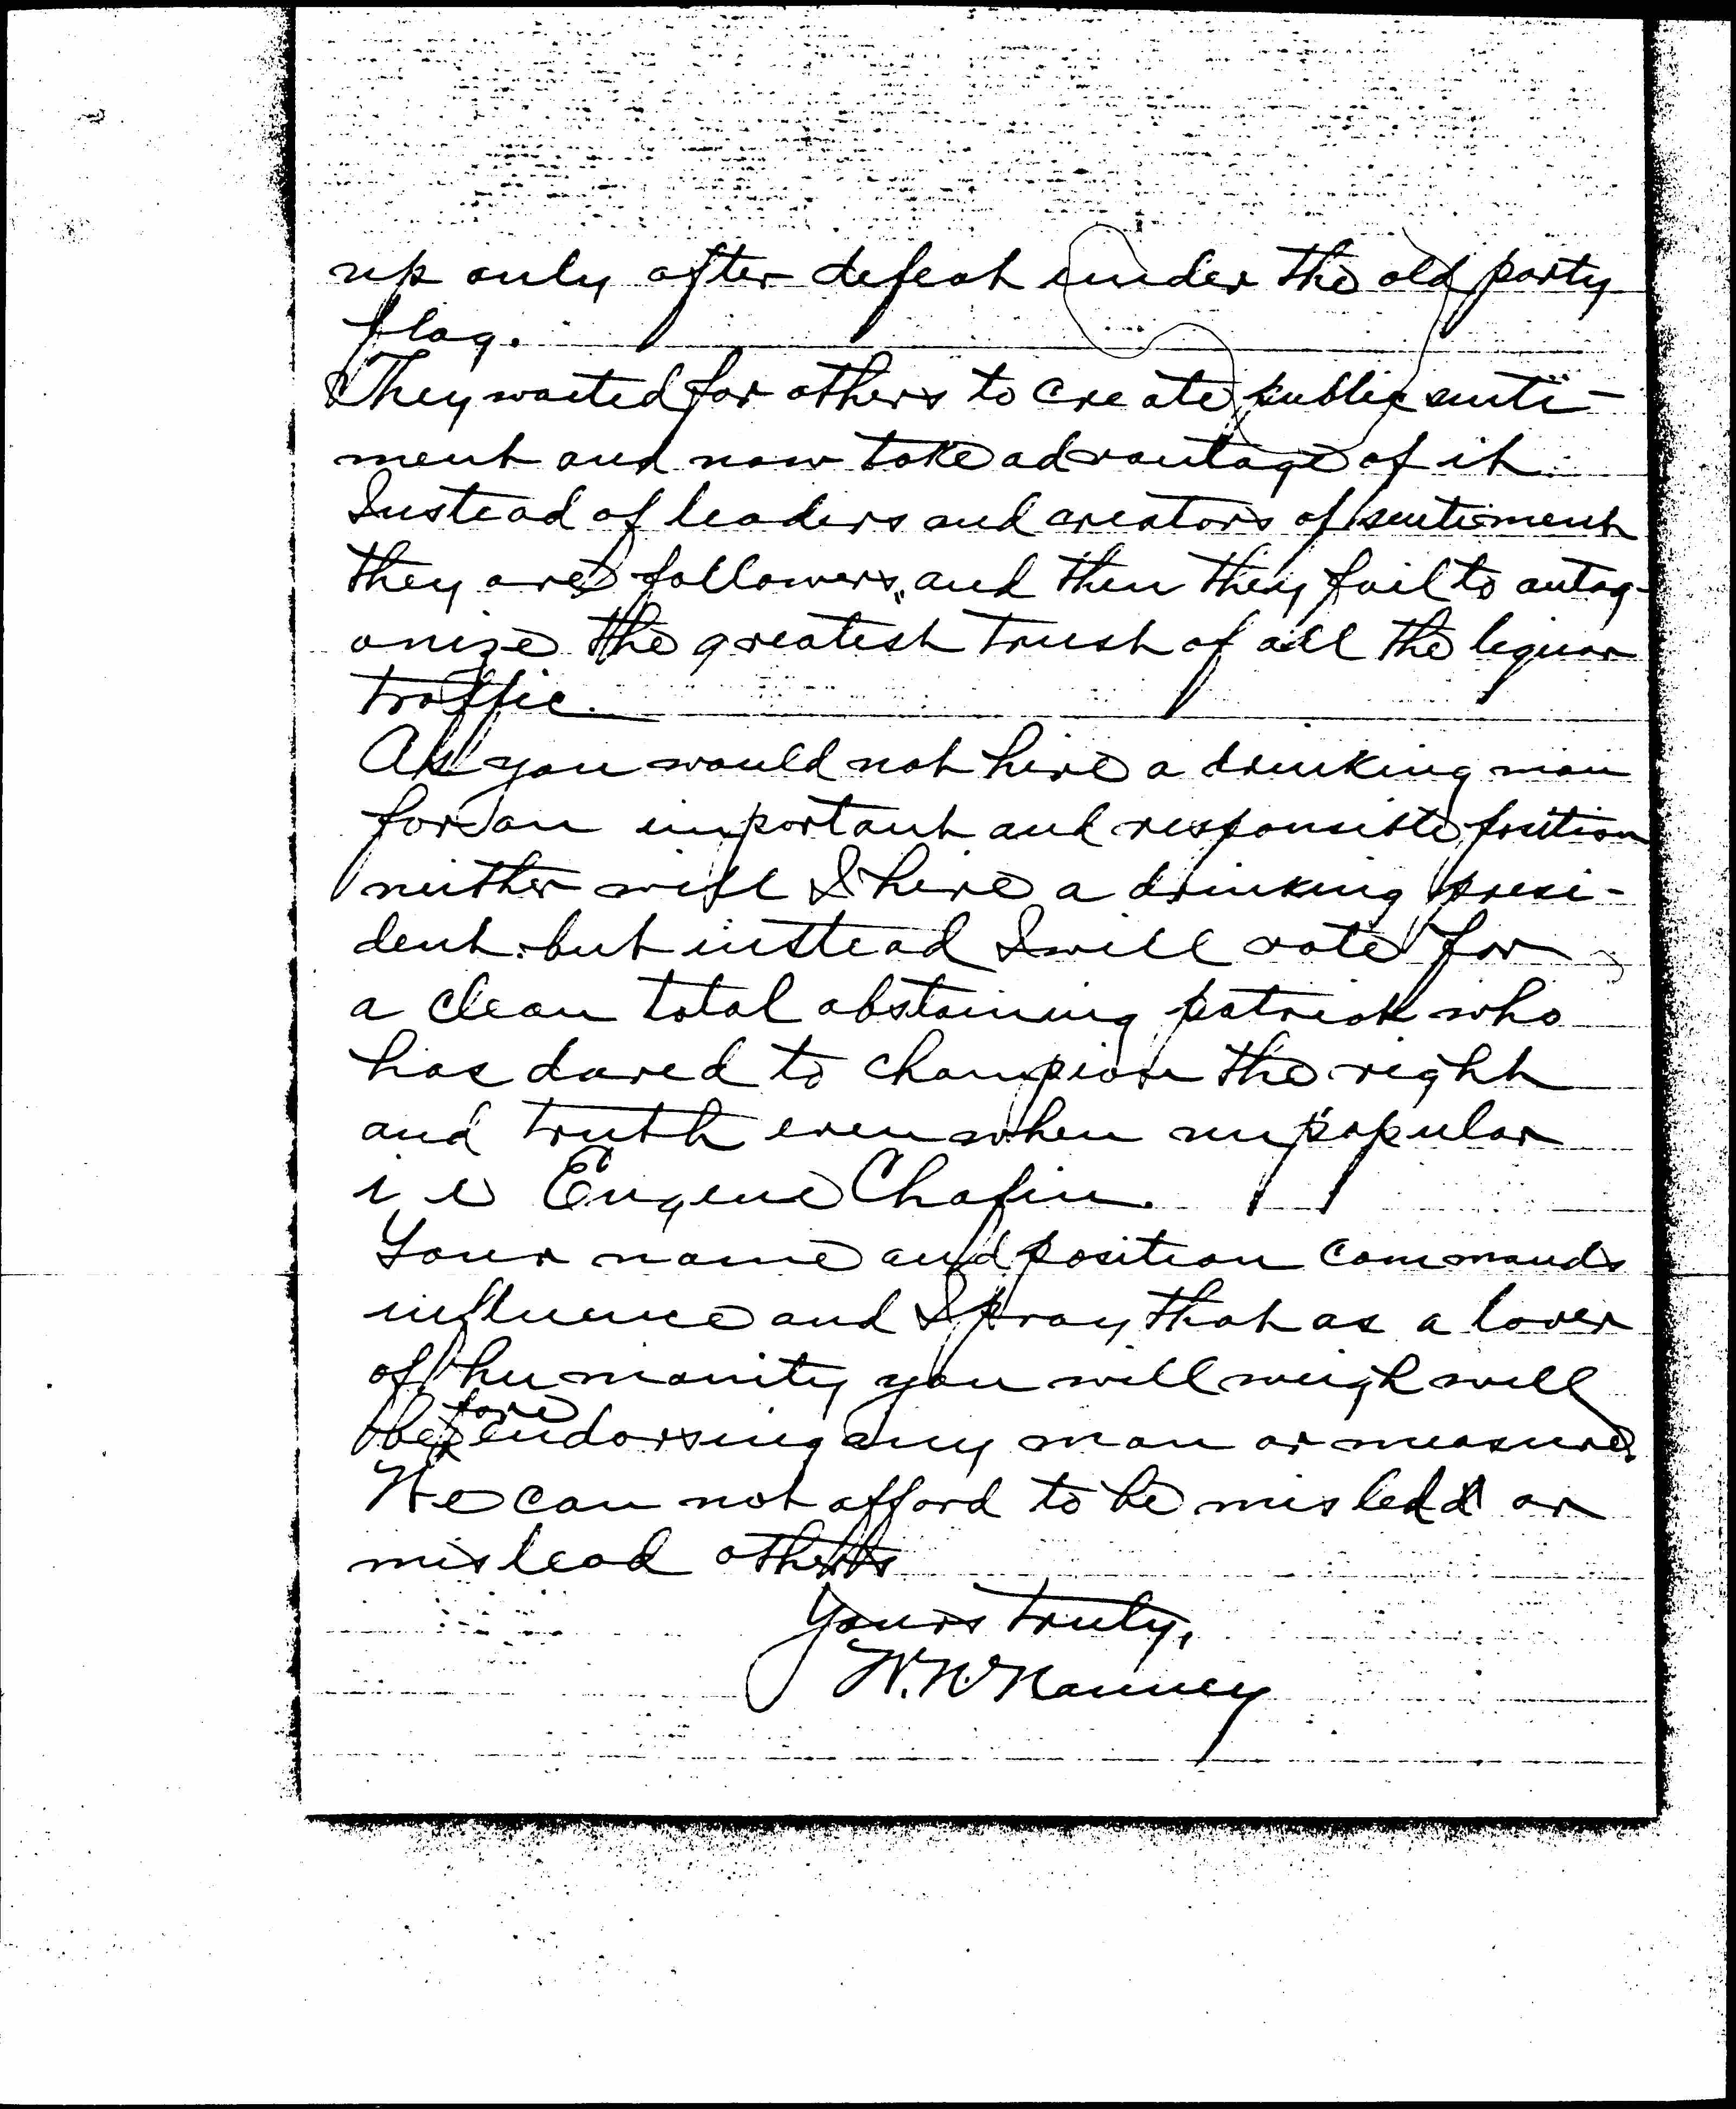 up only after defeat under the old party
flag.
They waited for others to create public senti-
ment and now take advantage of it.
Instead of leaders and creators of sentiment
they are followers, and then they fail to antag-
onize the greatest trust of all the liquor
traffic.
As you would not hire a drinking man
for an important and responsible position
neither will I hire a drinking presi-
dent. but instead I will vote for
a clean total abstaining patriot who
has dared to champion the right
and truth even when unpopular
i e Eugene Chafin.
Your name and position commands
influence and I pray that as a lover
of humanity you will weigh well
before endorsing any man or measure.
We can not afford to be misled or
mislead others
Yours truly,
W. N. Nanney